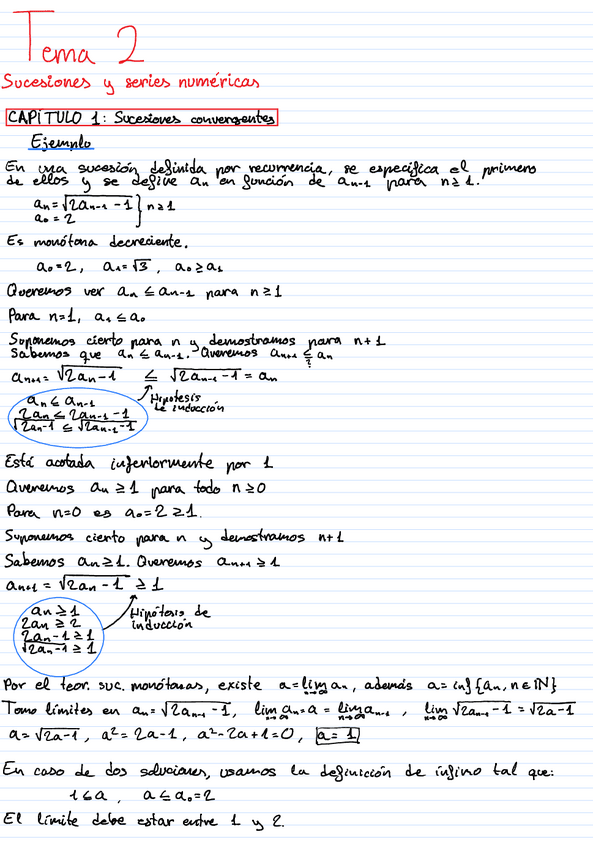 Tema 2
Sucesiones y series numéricas
CAPÍTULO 1: Sucesiones convergentes
Ejemplo
En una sucesión definida por recurrencia, se especifica el primero
de ellos y se define aₙ en función de aₙ₋₁ para n≥1.
aₙ = √(2aₙ₋₁ - 1) } n≥1
a₀ = 2
Es monótona decreciente.
a₀ = 2, a₁ = √3, a₀ ≥ a₁
Queremos ver aₙ ≤ aₙ₋₁ para n≥1
Para n=1, a₁ ≤ a₀
Suponemos cierto para n y demostramos para n+1
Sabemos que aₙ ≤ aₙ₋₁. Queremos aₙ₊₁ ≤ aₙ
?
aₙ₊₁ = √(2aₙ - 1) ≤ √(2aₙ₋₁ - 1) = aₙ
aₙ ≤ aₙ₋₁
2aₙ ≤ 2aₙ₋₁ - 1
√(2aₙ - 1) ≤ √(2aₙ₋₁ - 1)
Hipótesis
de inducción
Está acotada inferiormente por 1
Queremos aₙ ≥ 1 para todo n≥0
Para n=0 es a₀ = 2 ≥ 1.
Suponemos cierto para n y demostramos n+1
Sabemos aₙ ≥ 1. Queremos aₙ₊₁ ≥ 1
aₙ₊₁ = √(2aₙ - 1) ≥ 1
aₙ ≥ 1
2aₙ ≥ 2
2aₙ - 1 ≥ 1
√(2aₙ - 1) ≥ 1
Hipótesis de
inducción
Por el teor. suc. monótonas, existe a = lim n→∞ aₙ, además a = inf {aₙ, n ∈ ℕ}
Tomo límites en aₙ = √(2aₙ₋₁ - 1), lim n→∞ aₙ = a = lim n→∞ aₙ₋₁, lim n→∞ √(2aₙ₋₁ - 1) = √(2a - 1)
a = √(2a - 1), a² = 2a - 1, a² - 2a + 1 = 0, a = 1
En caso de dos soluciones, usamos la definición de ínfimo tal que:
1 ≤ a, a ≤ a₀ = 2
El límite debe estar entre 1 y 2.